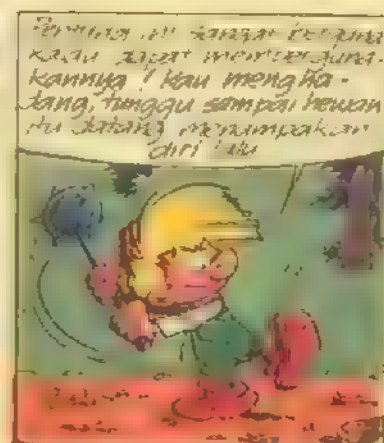 Pentung ini sangat berguna
kalau dapat memperguna-
kannya! Kau mengha-
dang, tunggu sampai hewan
itu datang menampakan
diri lalu